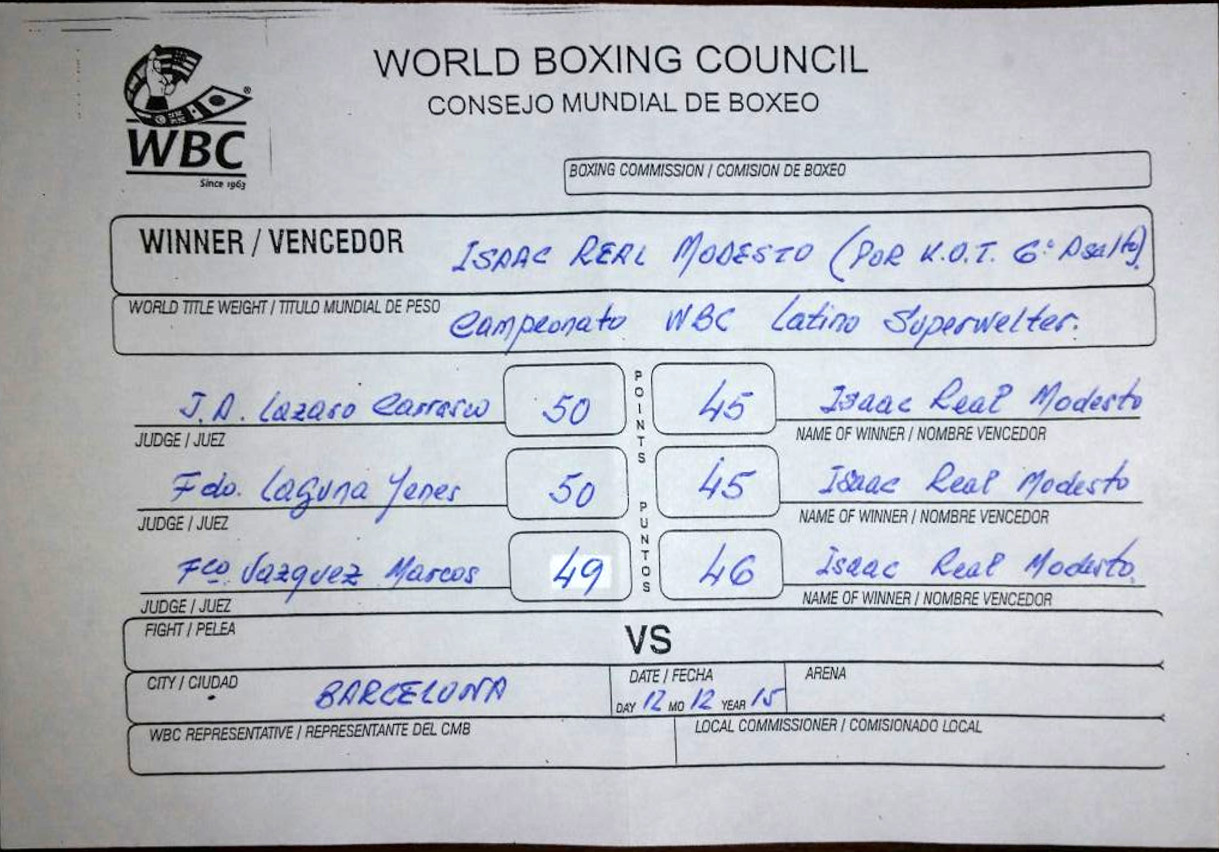 WORLD BOXING COUNCIL
CONSEJO MUNDIAL DE BOXEO
WBC
Since 1963
®
BOXING COMMISSION / COMISION DE BOXEO
WINNER / VENCEDOR ISAAC REAL MODESTO (POR K.O.T. 6º Asalto)
WORLD TITLE WEIGHT / TITULO MUNDIAL DE PESO Campeonato WBC Latino Superwelter.
J.A. Lazaro Carrasco 50 45 Isaac Real Modesto
JUDGE / JUEZ NAME OF WINNER / NOMBRE VENCEDOR
POINTS
Fdo. Laguna Yenes 50 45 Isaac Real Modesto
JUDGE / JUEZ NAME OF WINNER / NOMBRE VENCEDOR
PUNTOS
Fco Vazquez Marcos 49 46 Isaac Real Modesto
JUDGE / JUEZ NAME OF WINNER / NOMBRE VENCEDOR
FIGHT / PELEA VS
CITY / CIUDAD BARCELONA DATE / FECHA ARENA
DAY 12 MO 12 YEAR 15
WBC REPRESENTATIVE / REPRESENTANTE DEL CMB LOCAL COMMISSIONER / COMISIONADO LOCAL